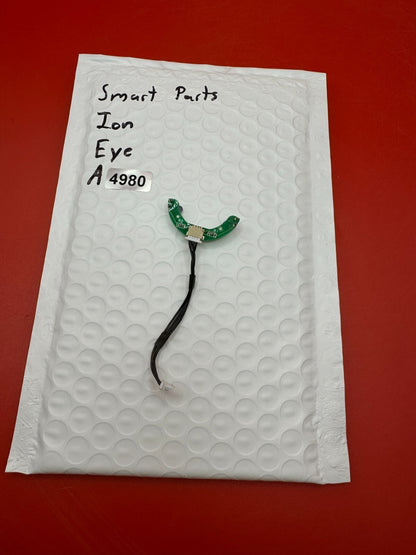 Smart Parts
Ion
Eye
A 4980